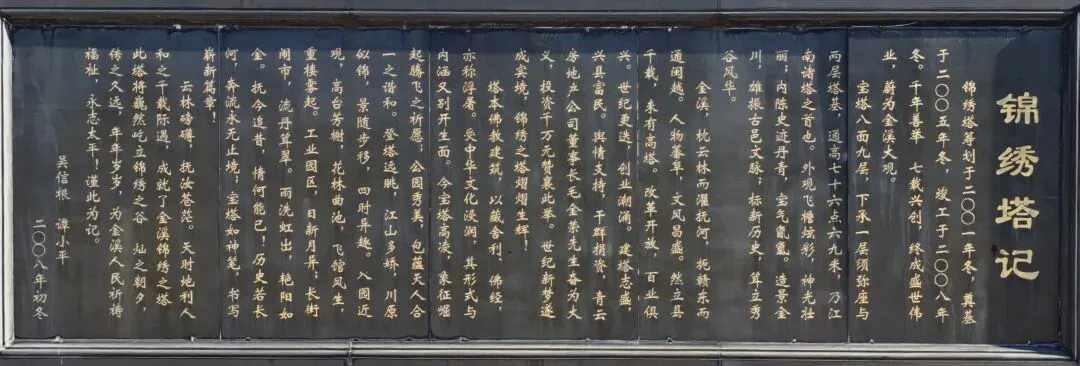 锦绣塔记
锦绣塔筹划于二〇〇一年冬，奠基
于二〇〇五年冬，竣工于二〇〇八年
冬。千年善举，七载兴创，终成盛世伟
业，蔚为金溪大观。
宝塔八面九层，下承一层须弥座与
两层塔基，通高七十六点六九米，乃江
南诸塔之首也。外观飞檐炫彩，神光壮
丽，内陈史迹丹青，宝气氤氲。造景金
川，雄振古邑文脉；标新历史，茸立秀
谷风华。
金溪，枕二林而濯抚河，扼赣东而
通闽越。人物荟萃，文风昌盛。然立县
千载，未有高塔。改革开放，百业俱
兴。世纪更迭，创业潮涌。建塔志盛，
兴县富民。舆情支持，干群捐资，青云
房地产公司董事长毛金荣先生奋为大
义，投资千万元赞襄此举。世纪新梦遂
成实境，锦绣之塔熠熠生辉！
塔本佛教建筑，以藏舍利、佛经，
亦称浮屠。受中华文化浸润，其形式与
内涵又别开生面。今宝塔高凌，象征崛
起腾飞之祈愿；公园秀美，包蕴天人合
一之谐和。登塔远眺，江山多娇，川原
似锦，景随步移，四时异趣。入园近
观，高台芳榭，花林曲池，飞馆风生，
重楼雾起。工业园区，日新月异；长街
闹市，流丹耸翠。雨洗虹出，艳阳如
金。抚今追昔，情何能已！历史若长
河，奔流永无止境；宝塔如神笔，书写
崭新篇章！
云林磅礴，抚汝苍茫。天时地利人
和之千载际遇，成就了金溪锦绣之塔，
此塔将巍然屹立锦绣之谷，灿之朝夕，
传之久远，年年岁岁，为金溪人民祈祷
福祉，永志太平！谨此为记。
吴信根 谭小平
二〇〇八年初冬